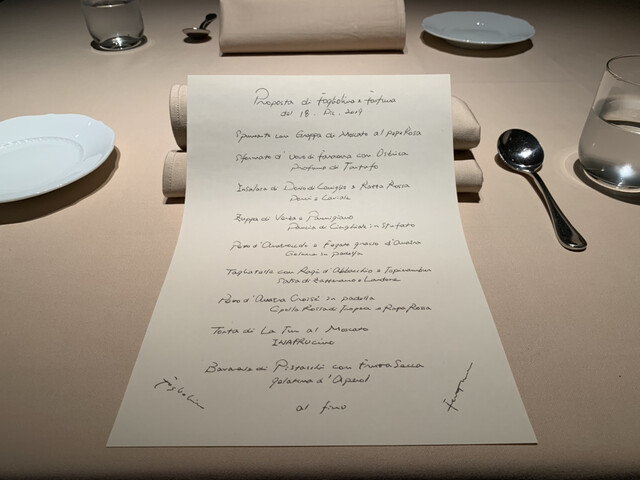 Proposta di Fagiolino e Fortuna
del 18. Dic. 2019
Spumante con Grappa de Moscato al pepe Rosa
Sformato d'uovo di faraona con Ostrica
Profumo di Tartufo
Insalata di Dorso di Coniglio e Rapa Rossa
Porri e Caviale
Zuppa di Verza e Parmigiano
Pancia di Cinghiale in Stufato
Petto d'Anatra e Fegato grasso d'Anatra
in padella
Tagliatelle con Ragù d'Abbacchio e Topinambur
Salsa di Zafferano e Lardone
Petto d'Anatra Croisé in padella
Cipolla Rossa di Tropea e Pepe Rosa
Torta di La Tur al Moscato
Bavarese di Pistacchi con Frutta Secca
gelatina d'Aperol
al fino